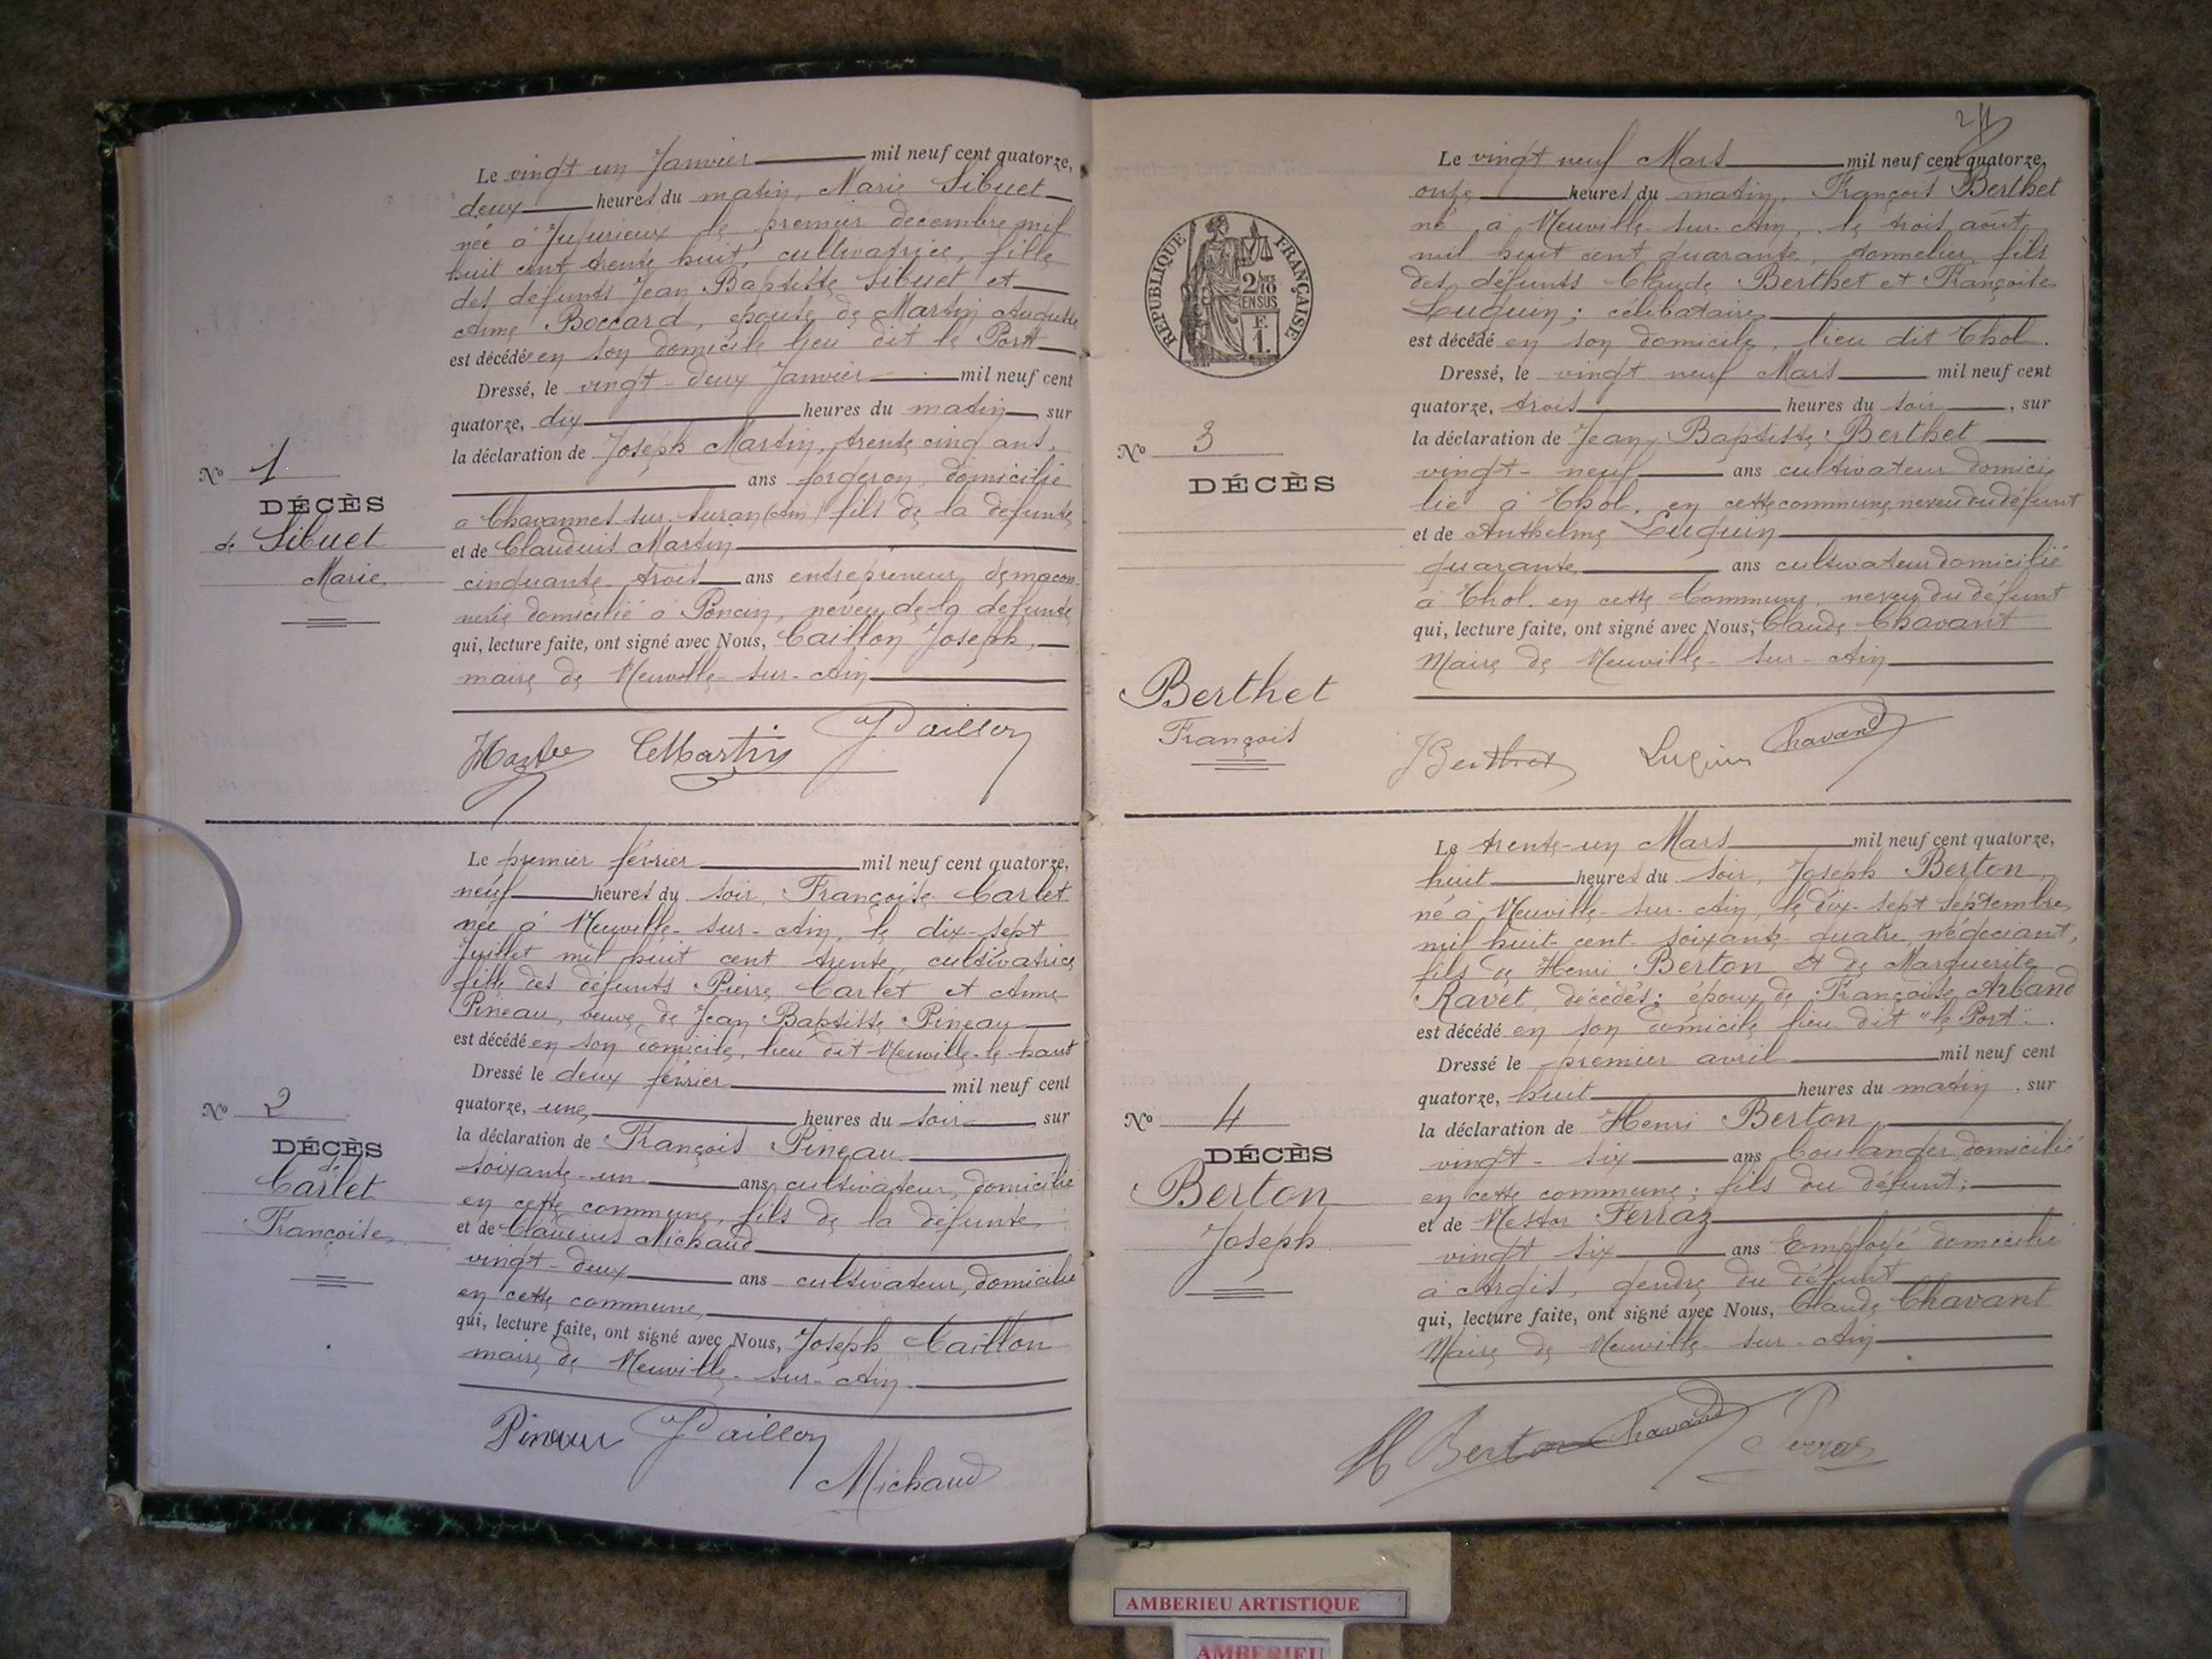 Le vingt un Janvier mil neuf cent quatorze,
deux heures du matin, Marie Sibuet
née à Jujurieux le premier décembre mil
huit cent trente huit, cultivatrice, fille
des défunts Jean Baptiste Sibuet et
Anne Boccard, épouse de Martin Auguste
est décédée en son domicile lieu dit le Port
Dressé, le vingt-deux Janvier mil neuf cent
quatorze, dix heures du matin, sur
la déclaration de Joseph Martin, trente cinq ans,
ans forgeron, domicilié
à Chavannes sur Suran (Ain) fils de la défunte,
et de Claudius Martin
cinquante-trois ans entrepreneur de maçon-
nerie domicilié à Poncin, neveu de la défunte
qui, lecture faite, ont signé avec Nous, Caillon Joseph,
maire de Neuville-sur-Ain
No 1
DÉCÈS
de Sibuet
Marie
CMartin
JCaillon
Le premier février mil neuf cent quatorze,
neuf heures du soir, Françoise Carlet
née à Neuville-sur-Ain, le dix-sept
Juillet mil huit cent trente, cultivatrice
fille des défunts Pierre Carlet et Anne
Pineau, veuve de Jean Baptiste Pineau
est décédé en son domicile, lieu dit Neuville-le-haut
Dressé le deux février mil neuf cent
quatorze, une heures du soir sur
la déclaration de François Pineau
soixante-un ans, cultivateur, domicilié
en cette commune, fils de la défunte,
et de Claudius Michaud
vingt-deux ans cultivateur, domicilié
en cette commune,
qui, lecture faite, ont signé avec Nous, Joseph Caillon
maire de Neuville-sur-Ain.
No 2
DÉCÈS
de
Carlet
Françoise
Pineau JCaillon
Michaud
Le vingt neuf Mars mil neuf cent quatorze,
onze heures du matin, François Berthet
né à Neuville-sur-Ain, le trois août
mil huit cent quarante, tonnelier, fils
des défunts Claude Berthet et Françoise
Luquin; célibataire
est décédé en son domicile, lieu dit Thol.
Dressé, le vingt neuf Mars mil neuf cent
quatorze, trois heures du soir, sur
la déclaration de Jean Baptiste Berthet
vingt-neuf ans cultivateur domici
lié à Thol, en cette commune, neveu du défunt
et de Anthelme Luquin
quarante ans cultivateur domicilié
à Thol. en cette Commune, neveu du défunt
qui, lecture faite, ont signé avec Nous, Claude Chavant
Maire de Neuville-sur-Ain
RÉPUBLIQUE FRANÇAISE
2/10 EN SUS
F. 1.
No 3
DÉCÈS
Berthet
François
JBerthet Luquin Chavant
Le trente-un Mars mil neuf cent quatorze,
huit heures du soir, Joseph Berton,
né à Neuville-sur-Ain, le dix-sept septembre
mil huit-cent-soixante-quatre, négociant,
fils de Henri Berton et de Marguerite
Ravet, décédés; époux de Françoise Arband
est décédé en son domicile lieu dit "le Port".
Dressé le premier avril mil neuf cent
quatorze, huit heures du matin, sur
la déclaration de Henri Berton,
vingt-six ans boulanger, domicilié
en cette commune; fils du défunt;
et de Nestor Ferraz
vingt six ans Employé domicilié
à Argis, gendre du défunt
qui, lecture faite, ont signé avec Nous, Claude Chavant
Maire de Neuville-sur-Ain
No 4
DÉCÈS
Berton
Joseph
H Berton Chavant Ferraz
AMBERIEU ARTISTIQUE
AMBERIEU